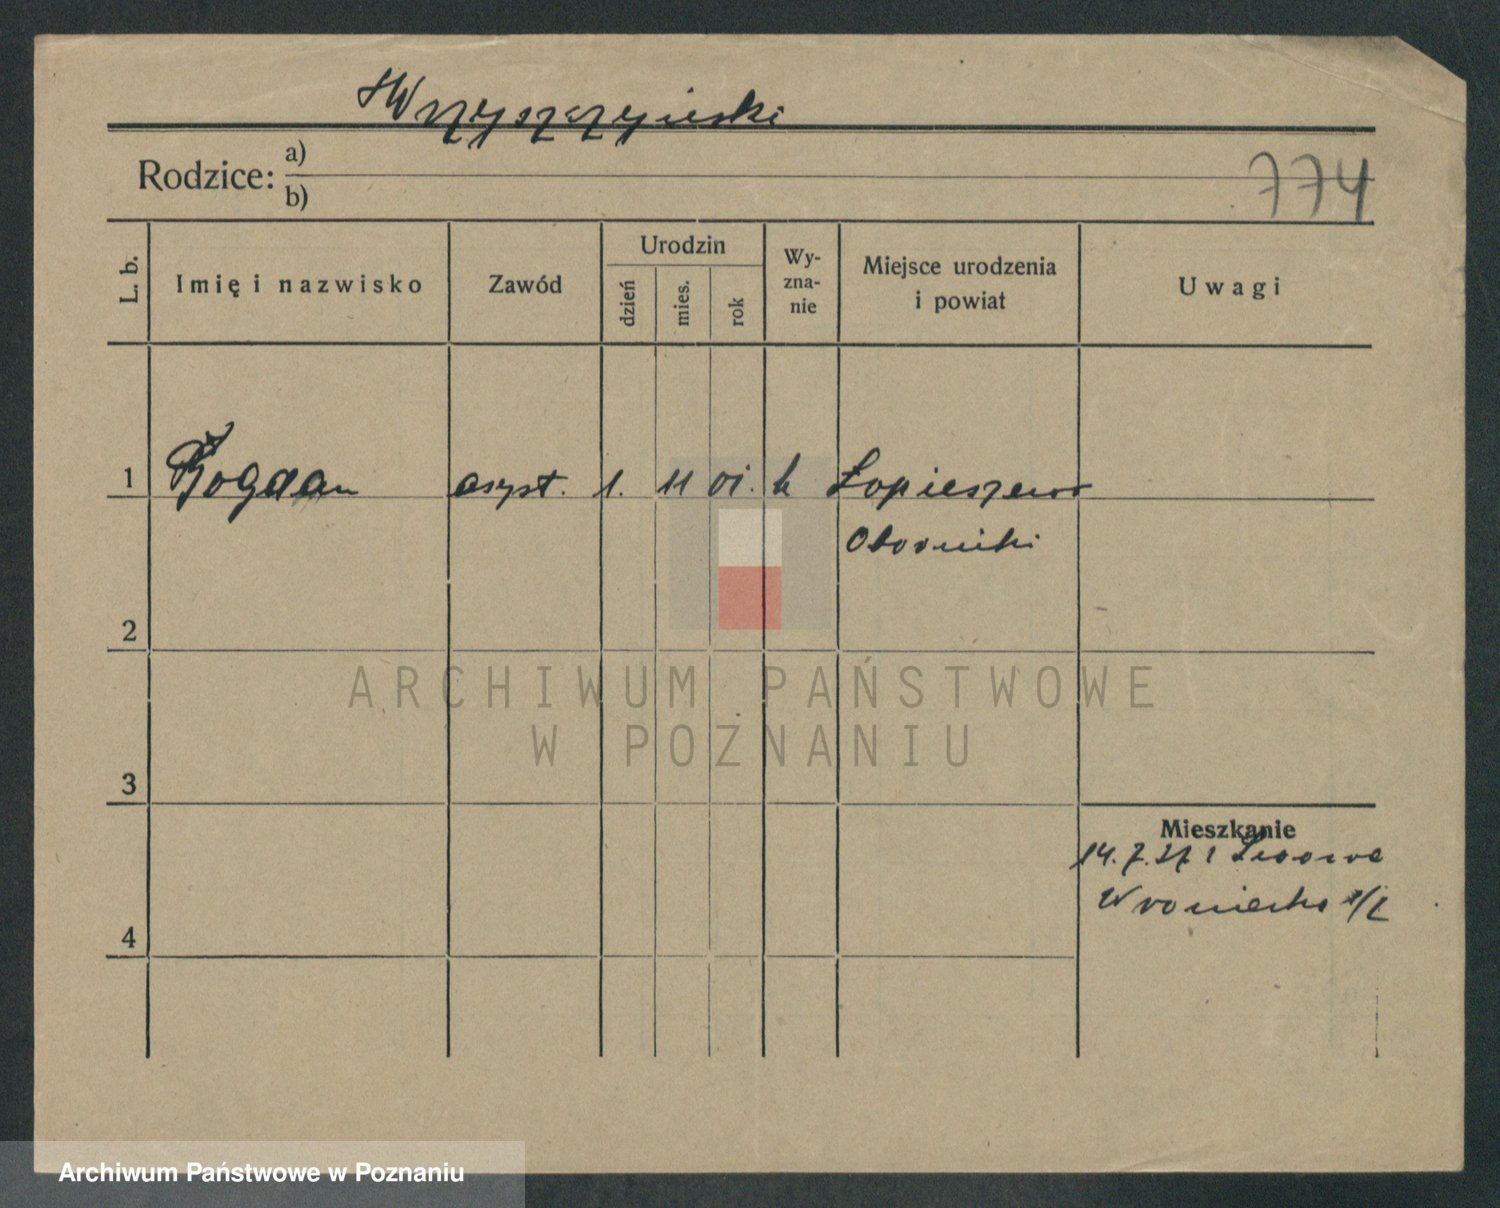 Wrzyszczyński
Rodzice: a)
b)
774
L. b.
Imię i nazwisko
Zawód
Urodzin
dzień
mies.
rok
Wy-
zna-
nie
Miejsce urodzenia
i powiat
Uwagi
1 Bogdan asyst. 1. 11 01. k Łopieszewo
Oborniki
2
ARCHIWUM PAŃSTWOWE
W POZNANIU
3
Mieszkanie
14.7.37
4
Archiwum Państwowe w Poznaniu